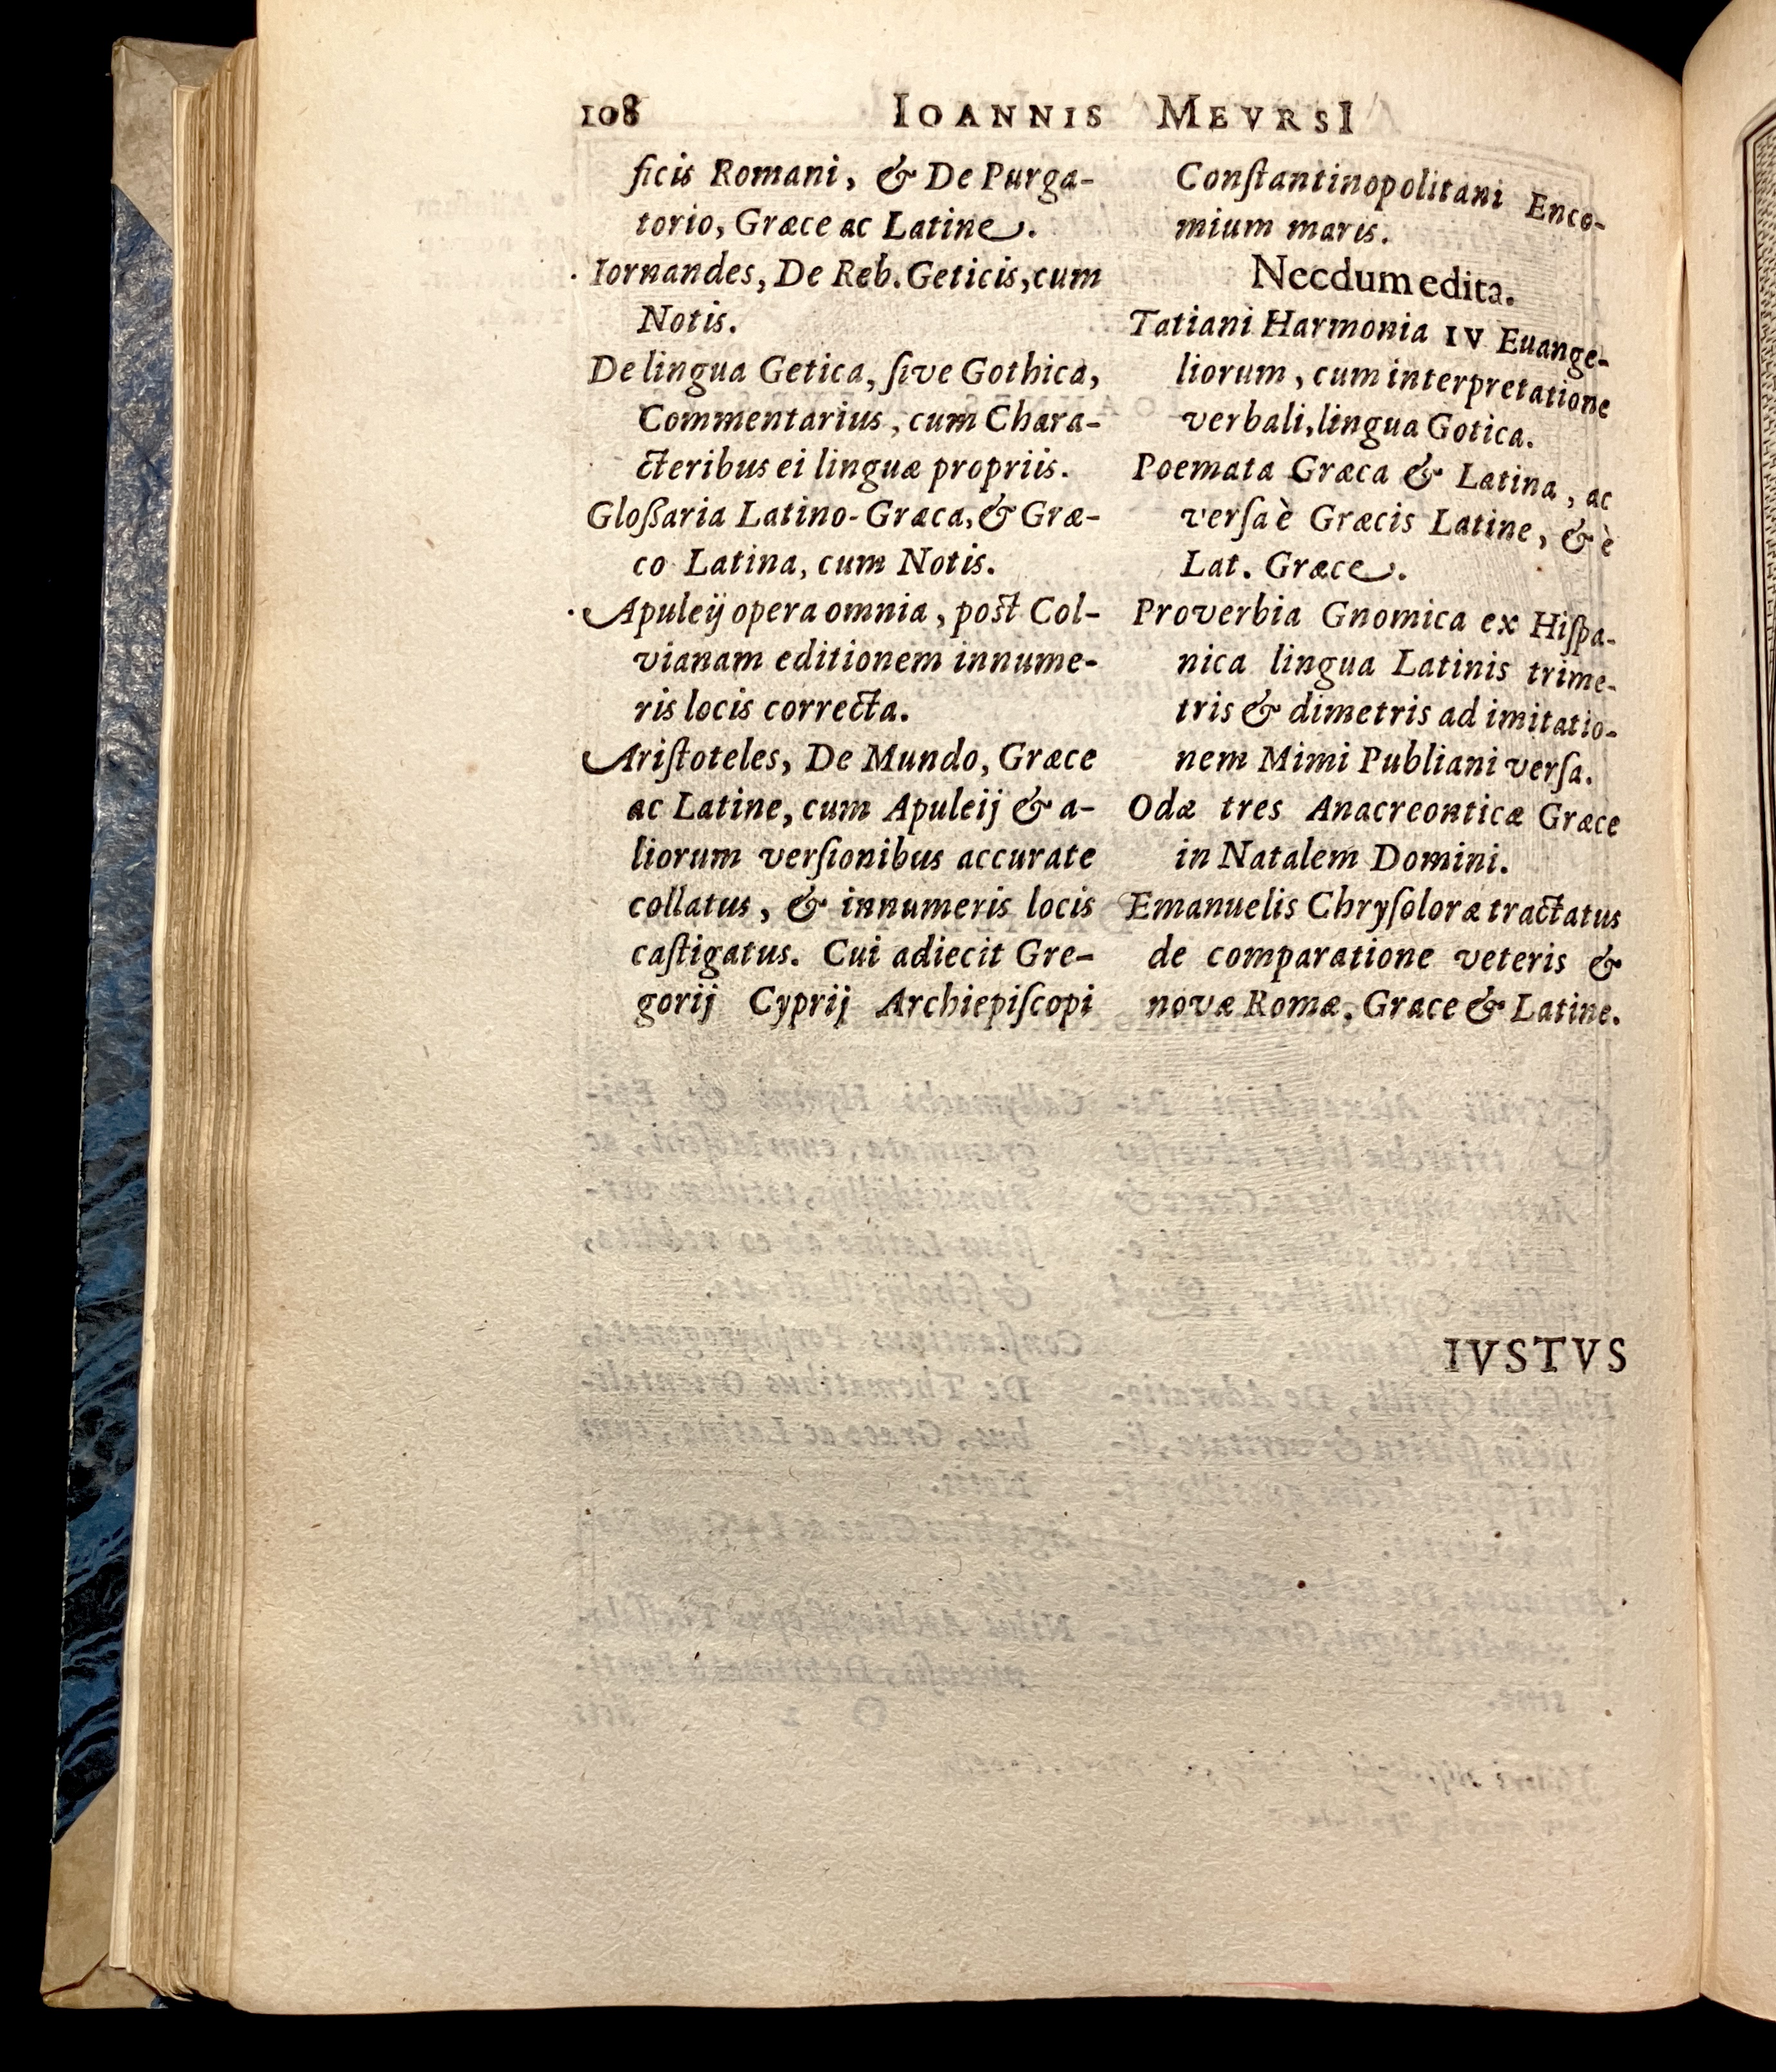 108 IOANNIS MEVRSI
ficis Romani, & De Purga-
torio, Græce ac Latine.
Iornandes, De Reb. Geticis, cum
Notis.
De lingua Getica, ſive Gothica,
Commentarius, cum Chara-
cteribus ei linguæ propriis.
Gloßaria Latino-Græca, & Græ-
co Latina, cum Notis.
Apuleij opera omnia, post Col-
vianam editionem innume-
ris locis correcta.
Ariſtoteles, De Mundo, Græce
ac Latine, cum Apuleij & a-
liorum verſionibus accurate
collatus, & innumeris locis
caſtigatus. Cui adiecit Gre-
gorij Cyprij Archiepiſcopi
Conſtantinopolitani Enco-
mium maris.
Necdum edita.
Tatiani Harmonia IV Euange-
liorum, cum interpretatione
verbali, lingua Gotica.
Poemata Græca & Latina, ac
verſa è Græcis Latine, & è
Lat. Græce.
Proverbia Gnomica ex Hiſpa-
nica lingua Latinis trime-
tris & dimetris ad imitatio-
nem Mimi Publiani verſa.
Odæ tres Anacreonticæ Græce
in Natalem Domini.
Emanuelis Chryſoloræ tractatus
de comparatione veteris &
novæ Romæ, Græce & Latine.
IVSTVS